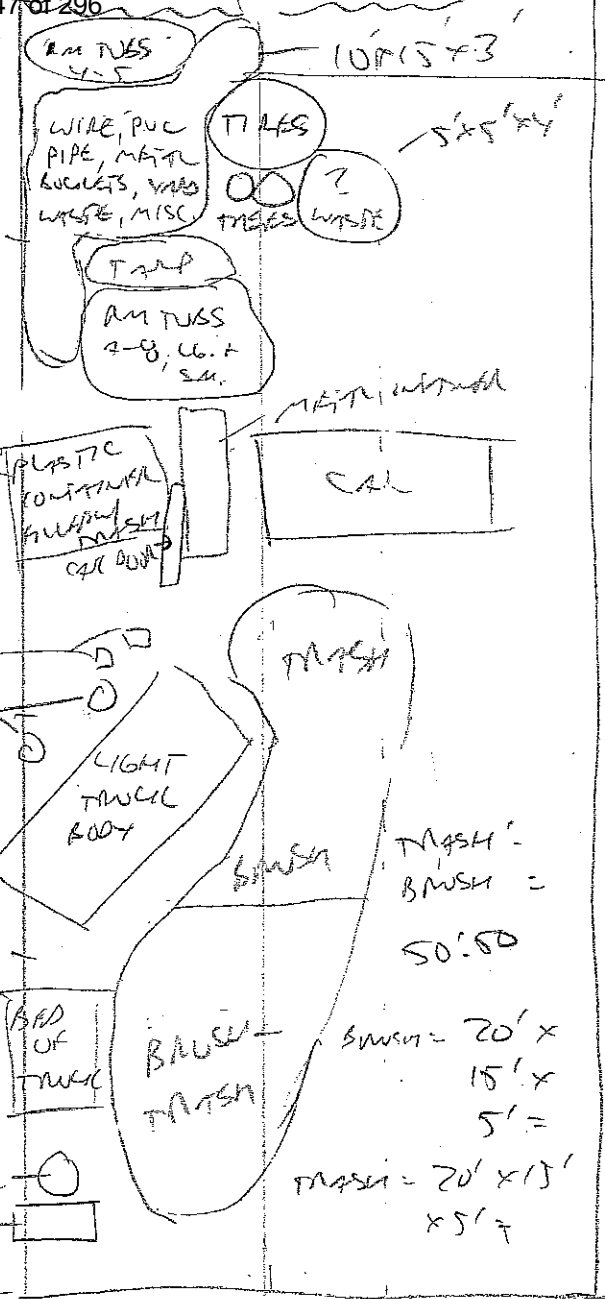 47 of 296
10'x15'x3'
WIRE, PVC
PIPE, METAL
BUCKETS, YARD
WASTE, MISC.
TIRES
TIRES
5'x5'x4'
?
WASTE
TARP
CAR
PLASTIC
CONTAINER
TRASH
CAR DOOR
TRASH
LIGHT
TRUCK
BODY
BRUSH
TRASH:
BRUSH =
50:50
BED
OF
TRUCK
BRUSH-
TRASH
BRUSH = 20' x
15' x
5' =
TRASH = 20' x 15'
x 5' =